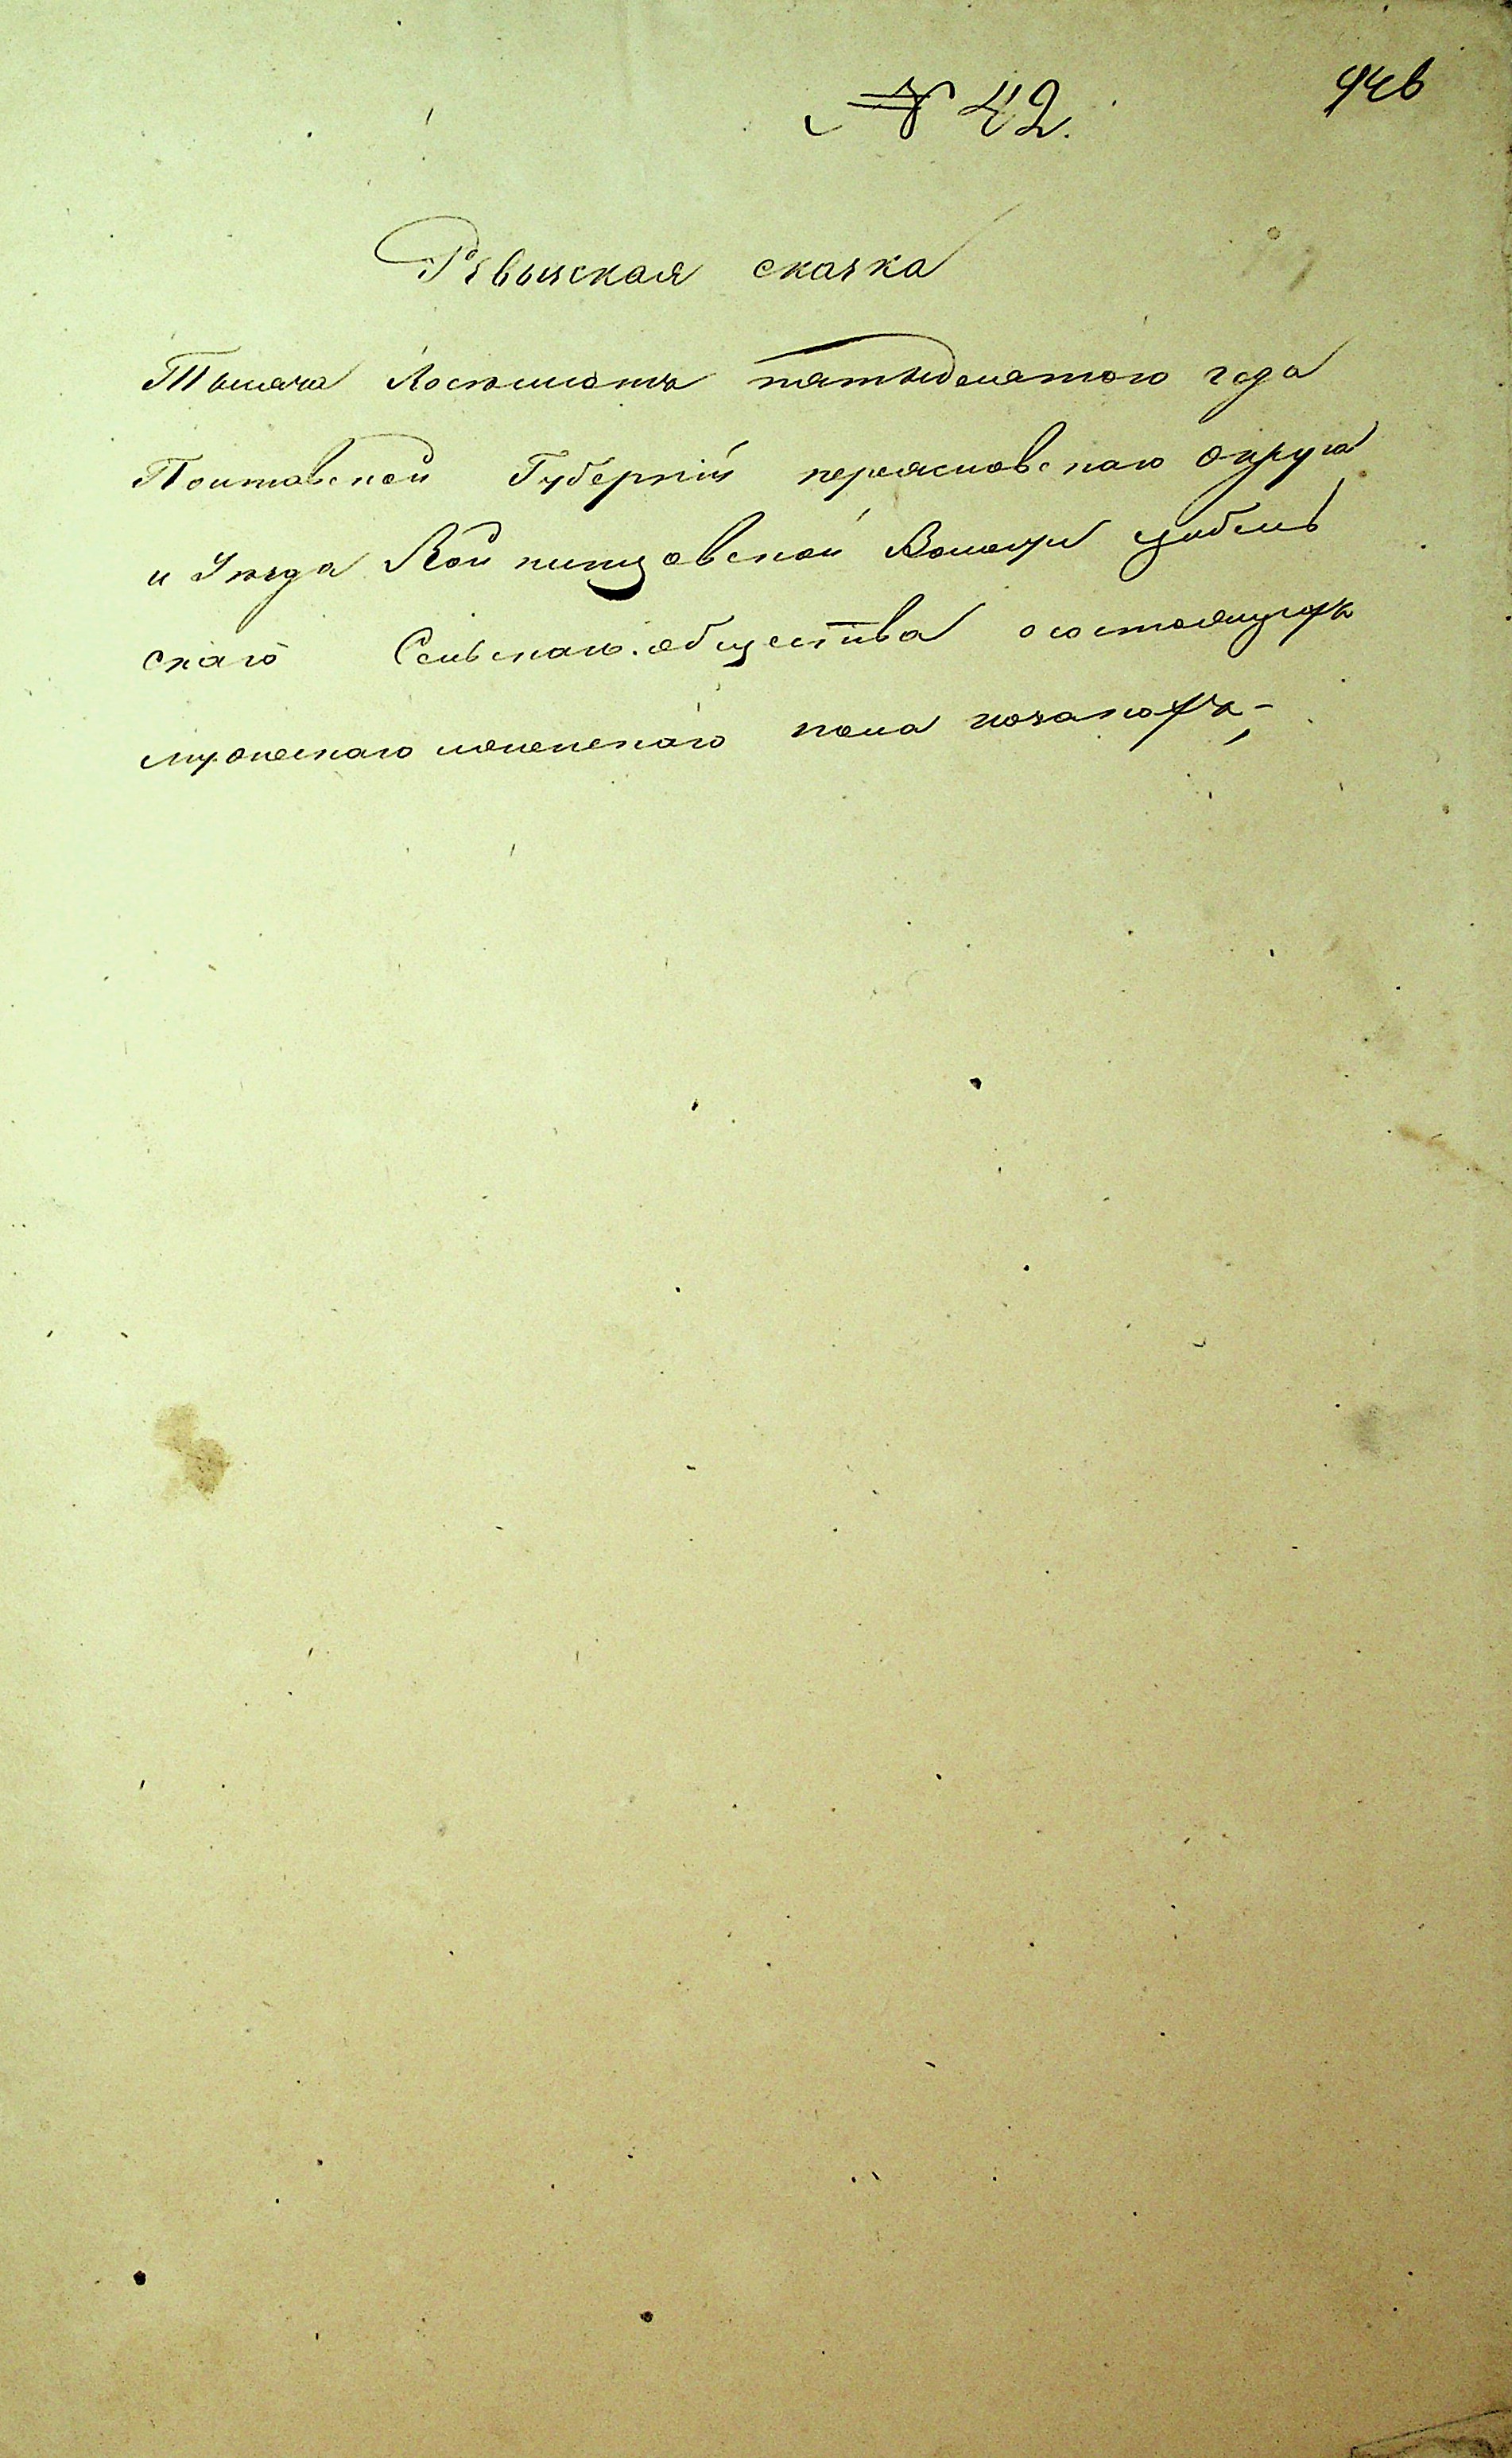 № 42.
946
Ревизская сказка
Тысяча восемьсотъ пятьдесятого года
Полтавской Губерніи переяславскаго округа
и Уезда Войтинцовской Волости цыбль
скаго Сельскаго общества о состоящихъ
мужескаго женскаго пола козакахъ